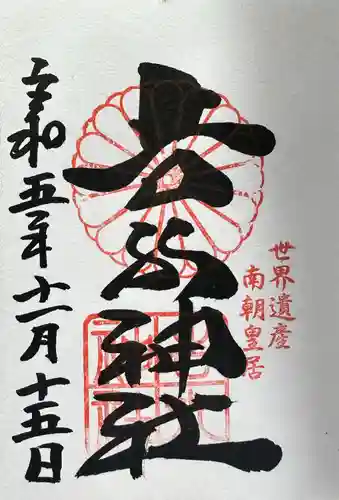 世界遺産
南朝皇居
吉水神社
令和五年十一月十五日